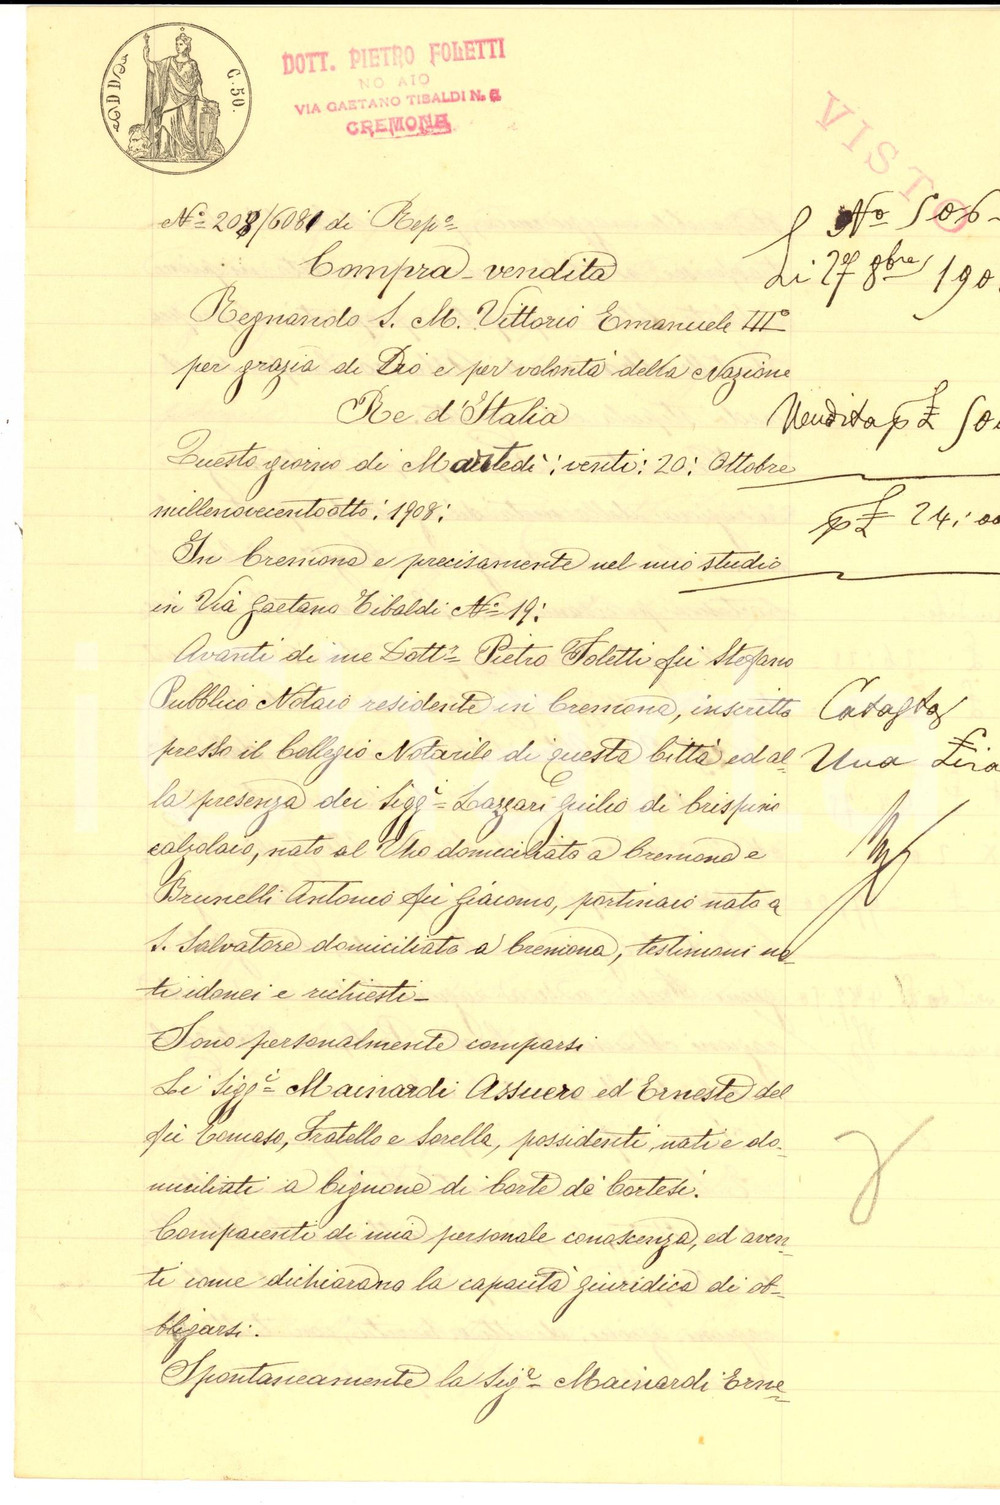 C. 50.
DOTT. PIETRO FOLETTI
NO AIO
VIA GAETANO TIBALDI N.
CREMONA
VISTO
No 506-
Li 27 8bre 190
Nº 208/6081 di Repº
Compra-vendita
Regnando S. M. Vittorio Emanuele IIIº
per grazia di Dio e per volontà della Nazione
Re d'Italia
Vendita p £ 50
Questo giorno di Martedì: venti: 20: Ottobre
millenovecentootto: 1908:
p £ 24:00
In Cremona e precisamente nel mio studio
in Via Gaetano Tibaldi Nº 19:
Avanti di me Dottr Pietro Foletti fu Stefano
Pubblico Notaio residente in Cremona, inscritto
presso il Collegio Notarile di questa Città ed al-
Una Lira
la presenza dei Sigg.i Lazzari Giulio di Crispino
calzolaio, nato al Vho domiciliato a Cremona e
Brunelli Antonio fu Giacomo, portinaio nato a
S. Salvatore domiciliato a Cremona, testimoni no-
ti idonei e richiesti-
Sono personalmente comparsi
Li Sigg.i Mainardi Assuero ed Erneste del
fu Tomaso, Fratello e Sorella, possidenti, nati e do-
miciliati a Cignone di Corte de' Cortesi.
Comparenti di mia personale conoscenza, ed aven-
ti come dichiarano la capacità giuridica di ob-
bligarsi.
Spontaneamente la Sig.a Mainardi Erne-